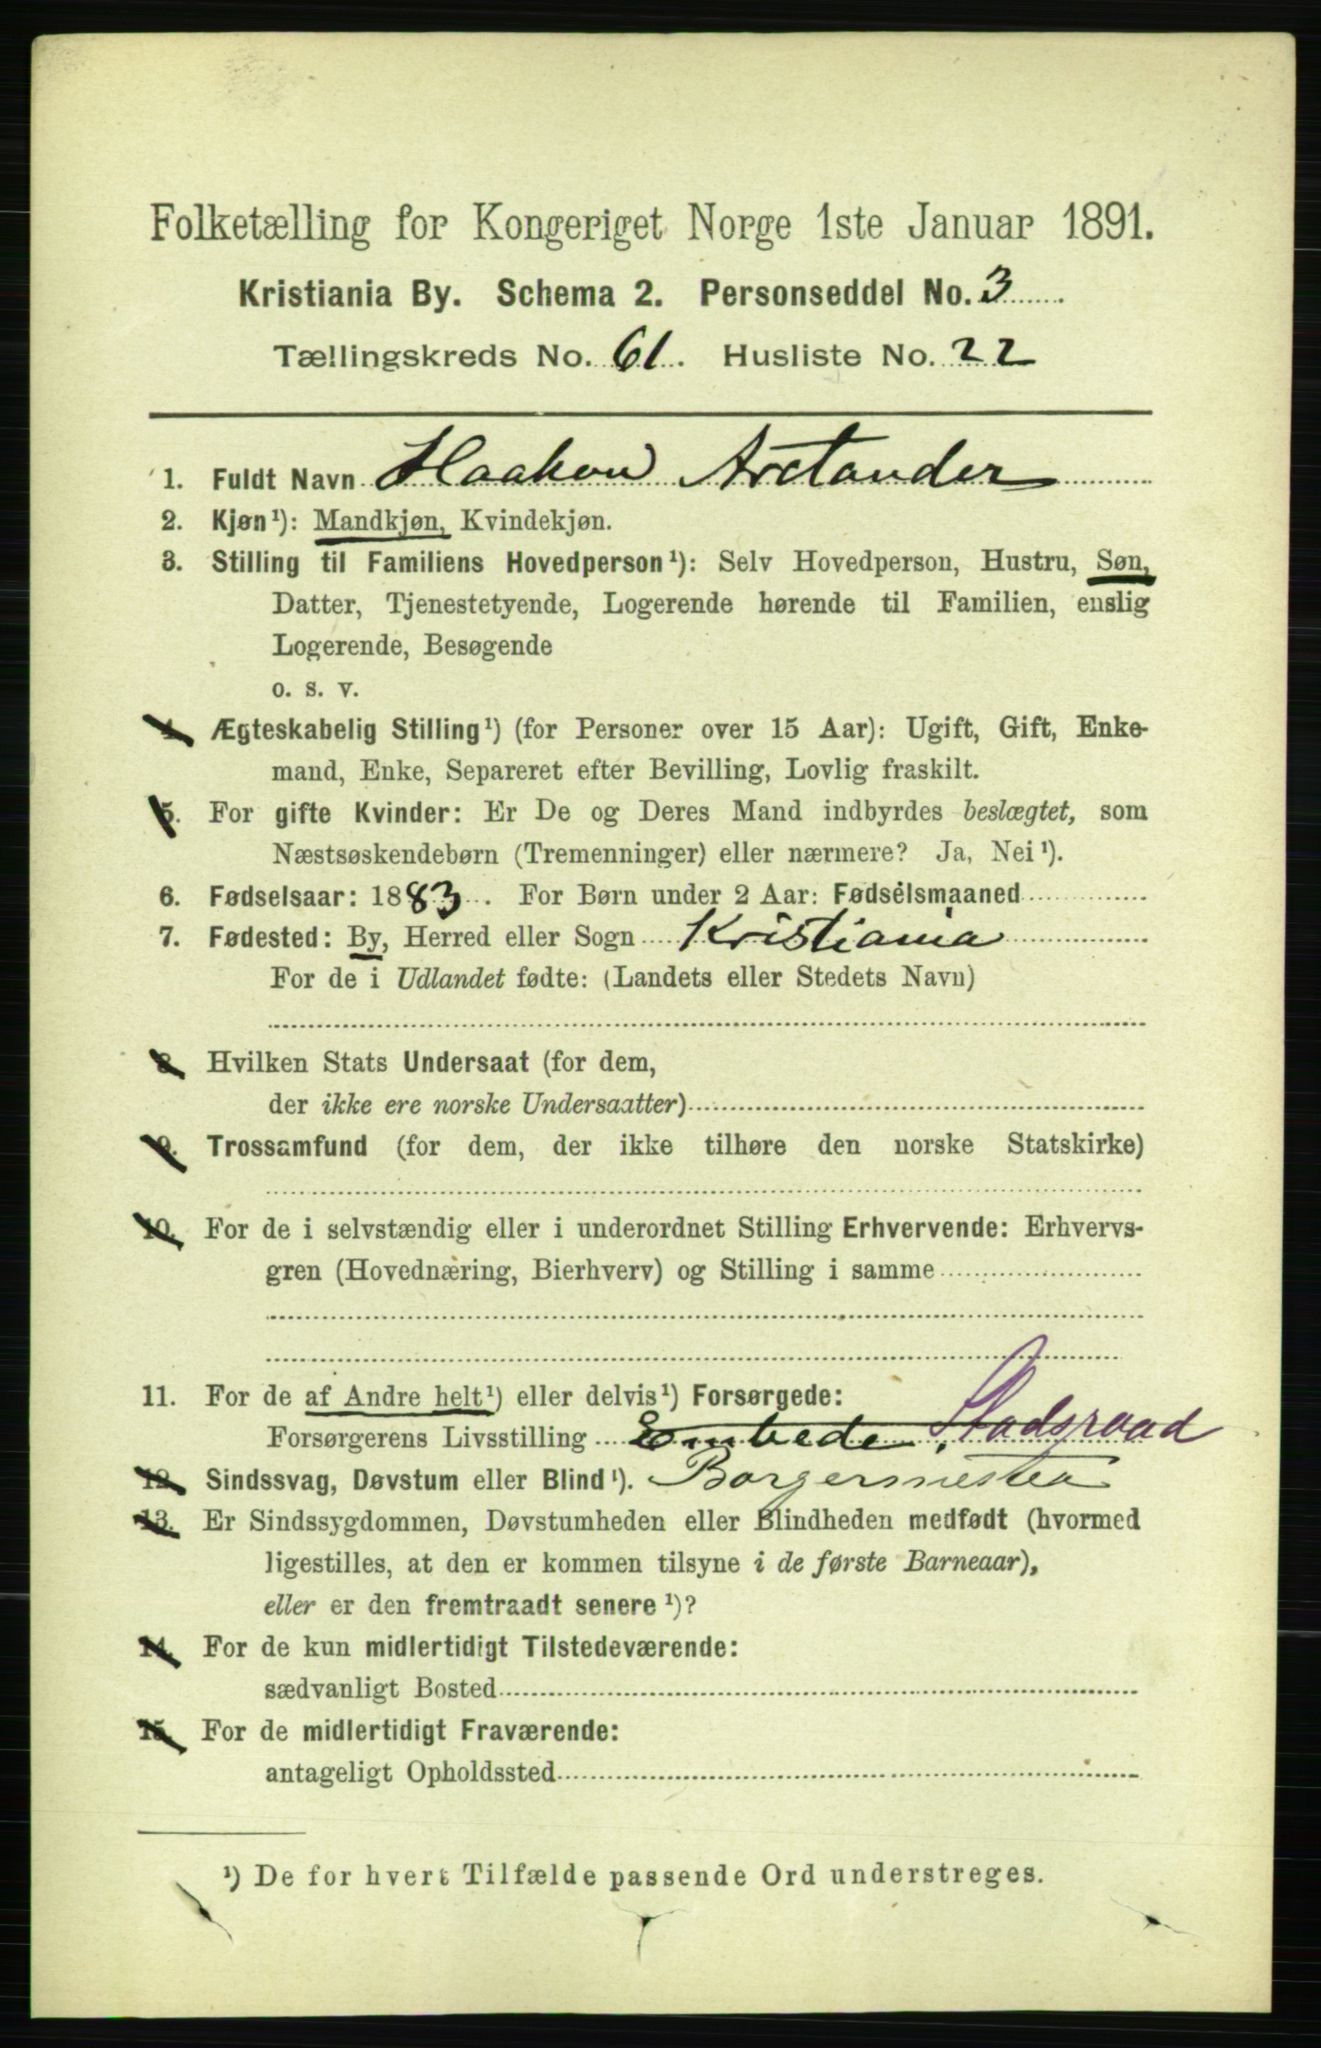 Folketælling for Kongeriget Norge 1ste Januar 1891.
Kristiania By. Schema 2. Personseddel No. 3
Tællingskreds No. 61. Husliste No. 22
1. Fuldt Navn Haakon Arctander
2. Kjøn¹): Mandkjøn, Kvindekjøn.
3. Stilling til Familiens Hovedperson¹): Selv Hovedperson, Hustru, Søn,
Datter, Tjenestetyende, Logerende hørende til Familien, enslig
Logerende, Besøgende
o. s. v.
4. Ægteskabelig Stilling¹) (for Personer over 15 Aar): Ugift, Gift, Enke-
mand, Enke, Separeret efter Bevilling, Lovlig fraskilt.
5. For gifte Kvinder: Er De og Deres Mand indbyrdes beslægtet, som
Næstsøskendebørn (Tremenninger) eller nærmere? Ja, Nei¹).
6. Fødselsaar: 1883. For Børn under 2 Aar: Fødselsmaaned
7. Fødested: By, Herred eller Sogn Kristiania
For de i Udlandet fødte: (Landets eller Stedets Navn)
8. Hvilken Stats Undersaat (for dem,
der ikke ere norske Undersaatter)
9. Trossamfund (for dem, der ikke tilhøre den norske Statskirke)
10. For de i selvstændig eller i underordnet Stilling Erhvervende: Erhvervs-
gren (Hovednæring, Bierhverv) og Stilling i samme
11. For de af Andre helt¹) eller delvis¹) Forsørgede:
Forsørgerens Livsstilling Embede. Stadsraad
12. Sindssvag, Døvstum eller Blind¹). Borgermester
13. Er Sindssygdommen, Døvstumheden eller Blindheden medfødt (hvormed
ligestilles, at den er kommen tilsyne i de første Barneaar),
eller er den fremtraadt senere¹)?
14. For de kun midlertidigt Tilstedeværende:
sædvanligt Bosted
15. For de midlertidigt Fraværende:
antageligt Opholdssted
¹) De for hvert Tilfælde passende Ord understreges.